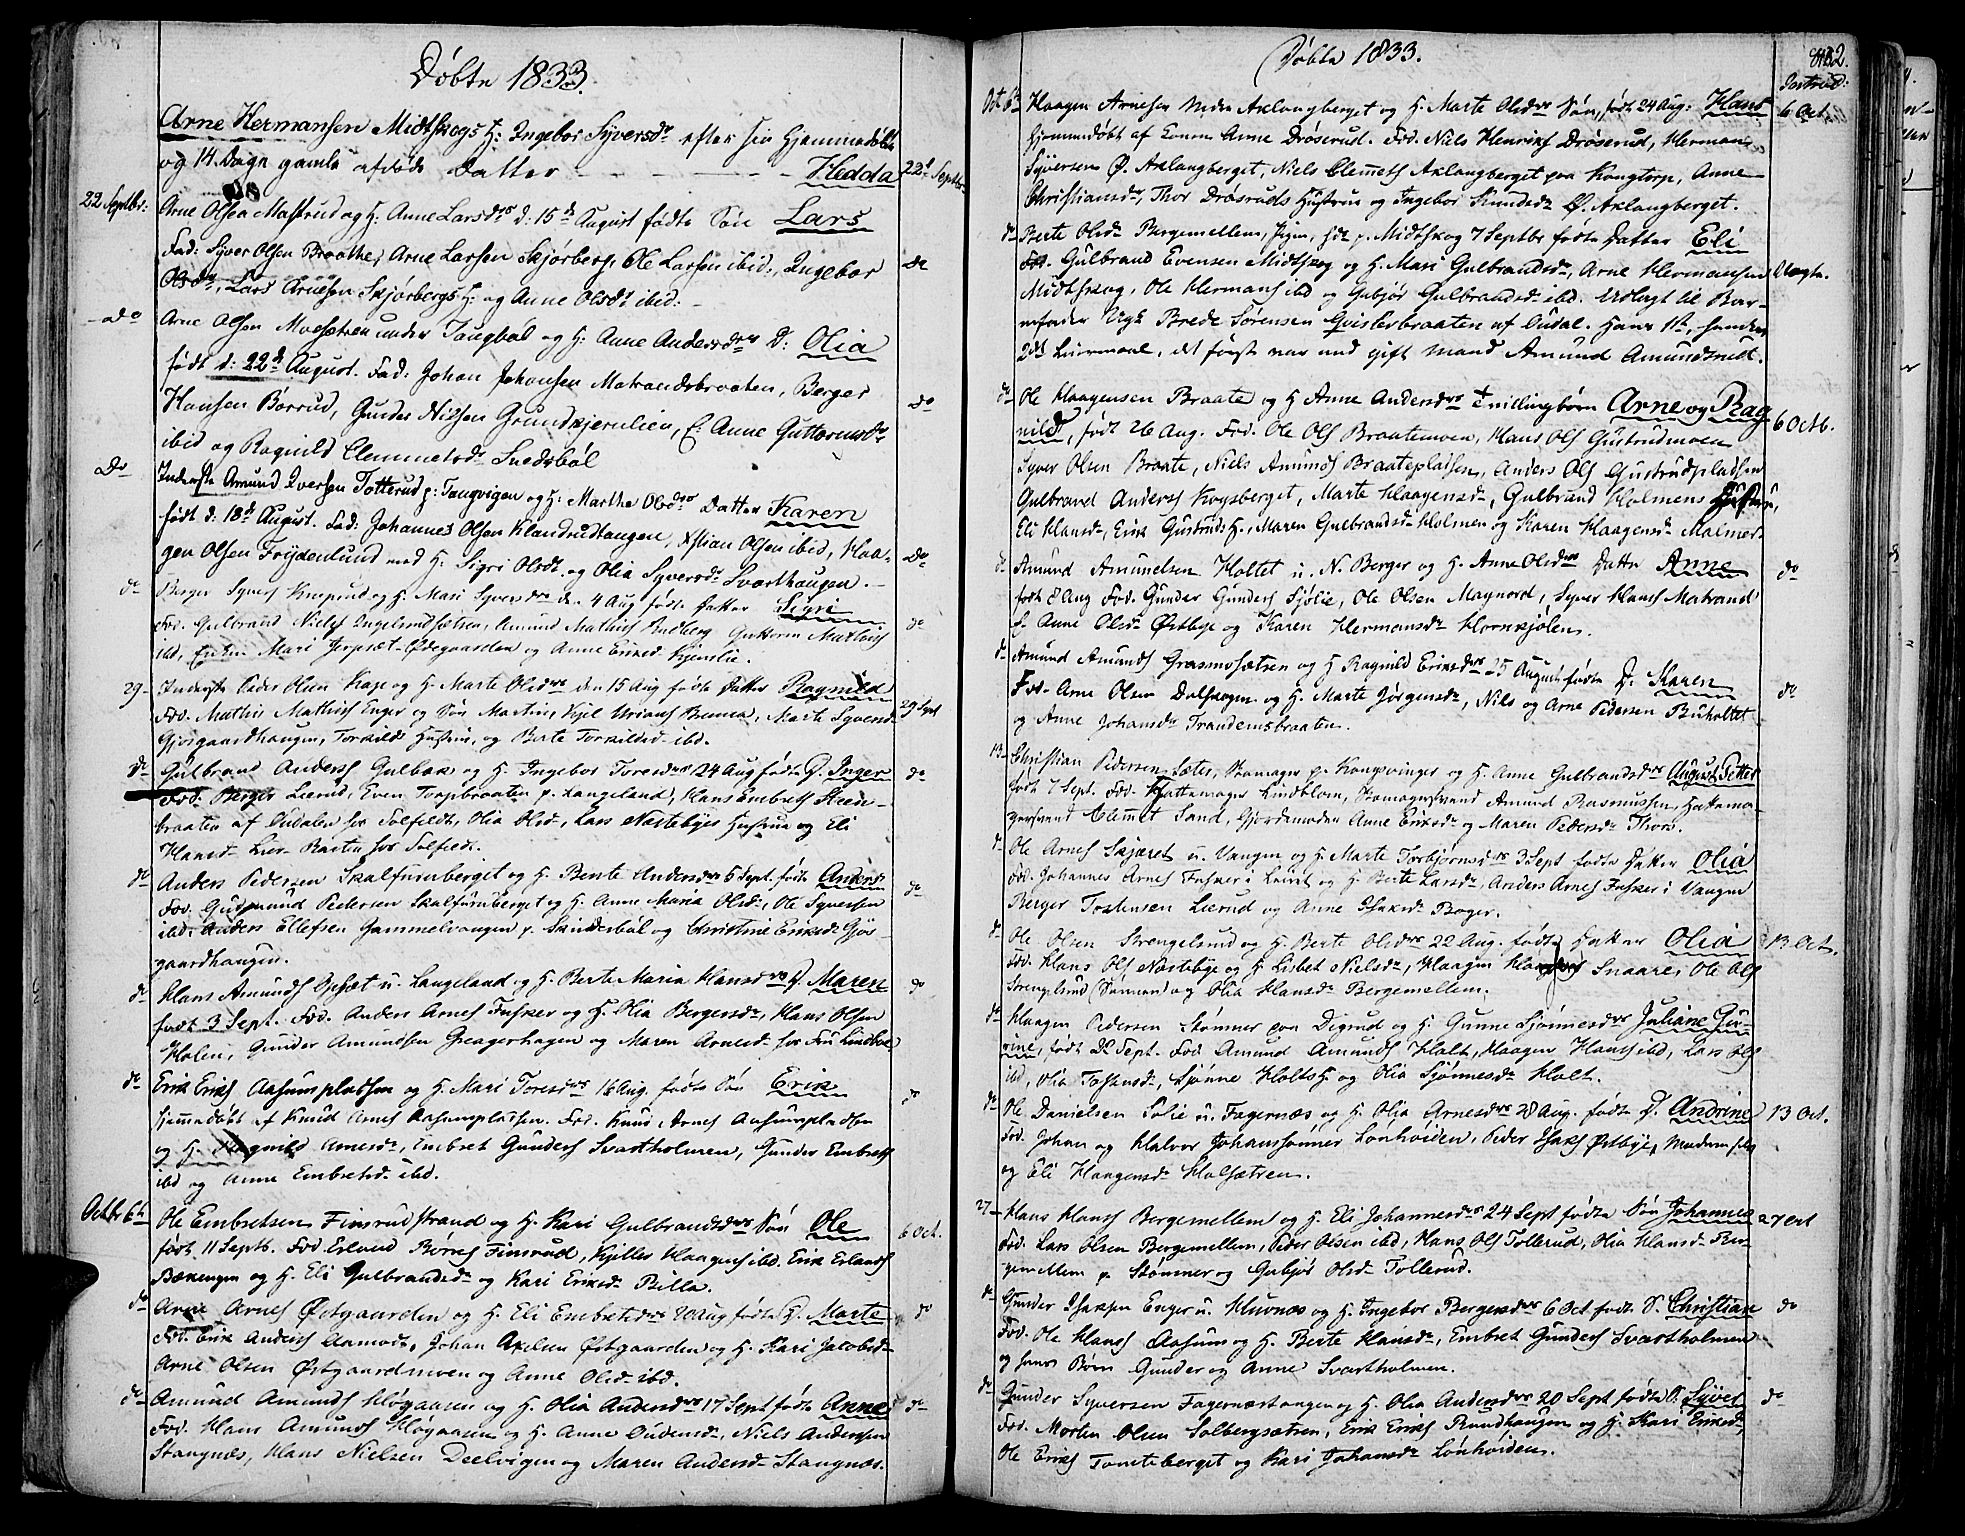 Døbte 1833.
Arne Hermansen Midtskogs H: Ingebor Syversdr efter sin Hjemmedøbte
og 14 Dage gamle afdøde Datter - - - - Hedda 22d Septbr
22 Septbr: Arne Olsen Mastrud og H: Anne Larsdr d: 15de August fødte Søn Lars
Fad: Syver Olsen Braathe, Arne Larsen Skjørberg, Ole Larsen ibid., Ingebor do
Olsdr, Lars Arnesen Skjørbergs H: og Anne Olsdr ibid: -
do Arne Olsen Moesætren under Taugbøl og H: Anne Andersdr D: Olia
født d: 22de August. Fad: Johan Johansen Matrandsbraaten, Berger
Hansen Børrud, Gunder Nilsen Grundkjernlien, E: Anne Guttormsdr do
ibid og Ragnild Clemmetsdr Snedsbøl
Do Inderste Amund Iversen Totterud p: Taugvigen og H: Marthe Olsdr Datter Karen
født d: 18de August. Fad: Johannes Olsen Klandrudtangen, Xstian Olsen ibid, Haa-
gen Olsen Frydenlund med H: Sigri Olsdr og Olia Syversdr Svarthaugen. - Do
do Berger Syvers Knaprud og H. Mari Syversdr den 4 Aug fødte Datter Sigri
Fad. Gulbrand Niels Ingelsrudsætren, Amund Mathis Rudberg Guttorm Mathis do
ibd, Enken Mari Jerpsæt-Ødegaarden og Anne Eriksd Kjenslie.
29- Inderste Peder Olsen Kaxe og H. Marte Olsdr den 15 Aug fødte Datter Ragnild
Fad. Mathis Mathis Enger og Søn Martin, Kjel Urians Buma, Marte Syversd 29 Sept
Gjørgaardhaugen, Torkilds Hustru, og Berte Torkildsd ibd.
do Gulbrand Anders Gulbæk og H. Ingebor Toresdr 24 Aug fødte D. Inger do
Fad. Berger Lierud, Even Torpbraaten p. Langeland, Hans Embrets Steen-
braaten af Oudalen for Tolfeldt, Olia Olsd, Lars Næstebyes Hustrue og Eli
Hansdr Lier-Rasten for Tolfeldt.
do Anders Pedersen Skalfurnberget og H. Bente Andersdr 5 Sept. fødte Anders
Fad. Gudmund Pedersen Skalfurnberget og H. Anne Maria Olsdr, Ole Syversen do
ibd. Anders Ellefsen Gammelvangen p. Skinderbøl og Christine Eriksdr Gjør-
gaardhaugen.
do Hans Amunds Opsæt u. Langeland og H. Berte Maria Hansdr D. Maren do
født 3 Sept. Fad. Anders Arnes Fusker og H. Olia Bergersdr, Hans Olsen
Holen, Gunder Amundsen Greagerhagen og Maren Arnesdr for Fru Lindboe
do Erik Eriks Aasumpladsen og H. Mari Toresdr 16 Aug. fødte Søn Erik
hjemmedøbt af Knud Arnes Aasumpladsen. Fad. Knud Arnes Aasumpladsen do
og H. Ragnild Arnesdr, Embret Gunders Svartholmen, Gunder Embrets
ibd og Anne Embretsd ibd.
Octbr 6te Ole Embretsen Finsrudstrand og H. Kari Gulbrandsdr Søn Ole
født 11 Septb. Fad Erland Børres Finsrud, Kjilles Haagens ibd. Erik Erlands 6 Oct.
Bækengen og H. Eli Gulbrandsdr og Kari Eriksdr Billa.
do Arne Arnes Østgaarden og H. Eli Embretsdr 20 Aug fødte D. Marte do
Fad. Erik Anders Aamodt, Johan Axelsen Østgaarden og H. Kari Jacobsd
Arne Olsen Østgaardmoen og Anne Olsdr ibd.
do Amund Amunds Høgaasen og H. Olia Andersdr 17 Sept fødte Anne do
Fad. Hans Amunds Høgaasen og H. Anne Oudensdr, Niels Andersen
Stangnæs, Hans Nielsen Deelvigen og Maren Andersdr Stangnæs.
Døbte 1833.
Introd:
Oct 6te Haagen Arnesen Nedre Axlangberget og H. Marte Olsdr Søn, født 24 Aug: Hans 6 Oct
hjemmedøbt af Konen Anne Drøserud. Fad. Niels Henriks Drøserud, Herman
Syversen Ø. Axlangberget, Niels Clemets Axlangberget paa Kongtorp, Anne
Christiansdr, Thor Drøsruds Hustrue og Ingebor Knudsdr Ø. Axlangberget.
do Berte Olsdr Bergemellem, Pigen, p. Midtskog 7 Septbr fødte Datter Eli
Fad. Gulbrand Evensen Midtskog og H. Mari Gulbrandsdr, Arne Hermansen Uægte.
Midtskog, Ole Hermans ibd og Gubjør Gulbrandsdr ibd. Udlagt til Bar-
nefader Ungk Brede Sørensen Qvislerbraaten af Oudal. Hans 1st, hendes
2det Leiermaal, det første var med gift Mand Amund Amundsrud.
do Ole Haagensen Braate og H Anne Andersdr Tvillingbørn Arne og Rag-
nild, født 26 Aug. Fad. Ole Ols Braatemoen, Hans Ols Gustrudmoen 6 Octb.
Syver Olsen Braate, Niels Amunds Braatepladsen, Anders Ols Gustrudpladsen
Gulbrand Anders Kogsberget, Marte Haagensdr, Gulbrand Holmens Hustrue,
Eli Hansdr, Erik Gustruds H, Maren Gulbrandsdr Holmen og Karen Haagensdr Malmer.
do Amund Amundsen Holtet u. N. Berger og H. Anne Olsdr Datter Anne do
født 8 Aug Fad. Gunder Gunders Sjølie, Ole Olsen Maynord, Syver Hans Matrand
E. Anne Olsdr Østbye og Karen Hermansdr Hornkjølen.
do Amund Amunds Grasmosætren og H Ragnild Eriksdr 25 August fødte D. Karen
Fad. Arne Olsen Dalskogen og H. Marte Jørgensdr, Nils og Arne Pedersen Buholtet do
og Anne Johansdr Trandemsbraaten.
13- Christian Pedersen Sæter, Skomager p. Kongsvinger og H. Anne Gulbrandsdr August Petter
født 7 Sept. Fad. Hattemager Lindblom, Skomagersvend Amund Rasmussen, Hattema-
gersvend Clemmet Sand, Gjordemoder Anne Eriksdr og Maren Pedersdr Thors.
do Ole Arnes Skjæret u. Vangen og H. Marte Torbjørnsdr 3 Sept fødte Datter Olia
Fad. Johannes Arnes Fusker i Leiret og H. Berte Larsdr, Anders Arnes Fusker i Vangen
Berger Tostensen Lierud og Anne Isaksdr Boger.
do Ole Olsen Strengelsrud og H. Berte Olsdr 22 Aug. fødte Datter Olia 13 Oct.
Fad. Hans Ols Næstebye og H Lisbet Nielsdr, Haagen Snaare, Ole Ols
Strenglsrud og Olia Hansdr Bergemellem.
do Haagen Pedersen Stømner paa Digrud og H. Gunne Sjønnesdr Juliane Gu-
rine, født 22 Sept. Fad Amund Amunds Holt, Haagen Hans ibd, Lars Ols
ibd, Olia Tostensdr, Sjønne Holts H. og Olia Sjønnesdr Holt.
do Ole Danielsen Solie u. Fagernæs og H. Olia Arnesdr 28 Aug. fødte D. Andrine 13 Oct.
Fad. Johan og Halvor Johanssønner Lønhoiden, Peder Isaks Østbye, Moderen selv
og Eli Haagensdr Holsætren.
27- Hans Hans Bergemellem og H. Eli Johannesdr 24 Sept fødte Søn Johannes 27 Oct
Fad. Lars Olsen Bergemellem, Peder Olsen ibd, Hans Ols Tollerud, Olia Hansdr Ber-
gemellem p. Stømner og Gubjør Olsdr Tollerud.
do Gunder Isaksen Enger u. Huvnæs og H. Ingebor Bergersdr 6 Oct. født S. Christian do
Fad. Ole Hans Aasum og H. Berte Hansdr, Embret Gunders Svartholmen
og hans Børn Gunder og Anne Svartholmen.
do Gunder Syversen Fagernæstangen og H. Olia Andersdr 20 Sept fødte S. Syver do
Fad. Morten Olsen Solbergsætren, Erik Eriks Rundhaugen og H. Kari Eriksdr,
Ole Eriks Tomteberget og Kari Johansdr Lønhoiden.